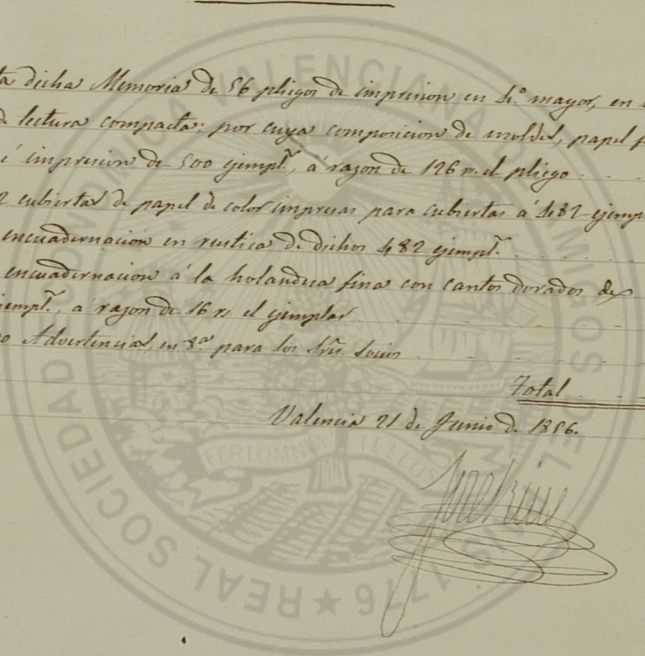 ta dicha Memoria de 56 pliegos de impresion en 4.º mayor, en
de lectura compacta; por cuya composicion de moldes, papel
é impresion de 500 ejempl.s, á razon de 126 rs. el pliego
2 cubiertas de papel de color impresas para cubiertas á 482 ejempl
encuadernacion en rustica de dichos 482 ejempl.s
encuadernacion á la holandesa fina con cantos dorados de
ejempl.s, á razon de 16 rs el ejemplar
Advertencias, en 8.º para los Sres. Socios
Total
Valencia 21 de Junio de 1856.
REAL SOCIEDAD VALENCIA AMIGOS DEL PAIS 1776
FERTIOMNIA TELLUS